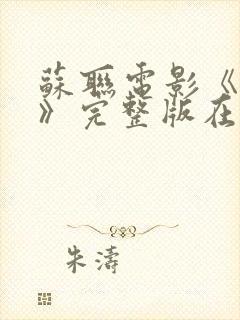 蘇聯電影《
》完整版在
朱濤